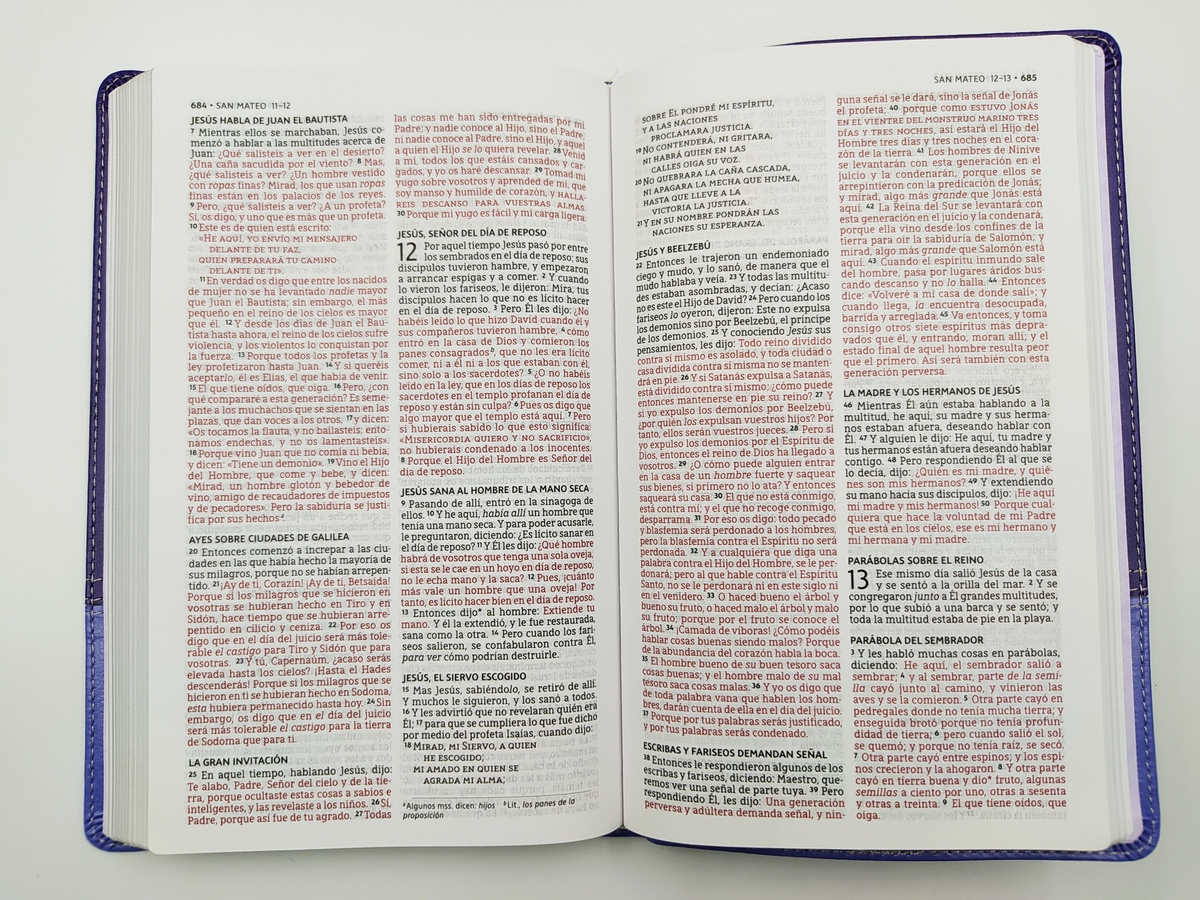 684 • SAN MATEO 11-12
JESÚS HABLA DE JUAN EL BAUTISTA
7 Mientras ellos se marchaban, Jesús co-
menzó a hablar a las multitudes acerca de
Juan: ¿Qué salisteis a ver en el desierto?
¿Una caña sacudida por el viento? 8 Mas,
¿qué salisteis a ver? ¿Un hombre vestido
con ropas finas? Mirad, los que usan ropas
finas están en los palacios de los reyes.
9 Pero, ¿qué salisteis a ver? ¿A un profeta?
Sí, os digo, y uno que es más que un profeta.
10 Este es de quien está escrito:
«HE AQUÍ, YO ENVÍO MI MENSAJERO
DELANTE DE TU FAZ,
QUIEN PREPARARÁ TU CAMINO
DELANTE DE TI».
11 En verdad os digo que entre los nacidos
de mujer no se ha levantado nadie mayor
que Juan el Bautista; sin embargo, el más
pequeño en el reino de los cielos es mayor
que él. 12 Y desde los días de Juan el Bau-
tista hasta ahora, el reino de los cielos sufre
violencia, y los violentos lo conquistan por
la fuerza. 13 Porque todos los profetas y la
ley profetizaron hasta Juan. 14 Y si queréis
aceptarlo, él es Elías, el que había de venir.
15 El que tiene oídos, que oiga. 16 Pero, ¿con
qué compararé a esta generación? Es seme-
jante a los muchachos que se sientan en las
plazas, que dan voces a los otros, 17 y dicen:
«Os tocamos la flauta, y no bailasteis; ento-
namos endechas, y no os lamentasteis».
18 Porque vino Juan que no comía ni bebía,
y dicen: «Tiene un demonio». 19 Vino el Hijo
del Hombre, que come y bebe, y dicen:
«Mirad, un hombre glotón y bebedor de
vino, amigo de recaudadores de impuestos
y de pecadores». Pero la sabiduría se justi-
fica por sus hechos a.
AYES SOBRE CIUDADES DE GALILEA
20 Entonces comenzó a increpar a las ciu-
dades en las que había hecho la mayoría de
sus milagros, porque no se habían arrepen-
tido. 21 ¡Ay de ti, Corazín! ¡Ay de ti, Betsaida!
Porque si los milagros que se hicieron en
vosotras se hubieran hecho en Tiro y en
Sidón, hace tiempo que se hubieran arre-
pentido en cilicio y ceniza. 22 Por eso os
digo que en el día del juicio será más tole-
rable el castigo para Tiro y Sidón que para
vosotras. 23 Y tú, Capernaúm, ¿acaso serás
elevada hasta los cielos? ¡Hasta el Hades
descenderás! Porque si los milagros que se
hicieron en ti se hubieran hecho en Sodoma,
esta hubiera permanecido hasta hoy. 24 Sin
embargo, os digo que en el día del juicio
será más tolerable el castigo para la tierra
de Sodoma que para ti.
LA GRAN INVITACIÓN
25 En aquel tiempo, hablando Jesús, dijo:
Te alabo, Padre, Señor del cielo y de la tie-
rra, porque ocultaste estas cosas a sabios e
inteligentes, y las revelaste a los niños. 26 Sí,
Padre, porque así fue de tu agrado. 27 Todas
las cosas me han sido entregadas por mi
Padre; y nadie conoce al Hijo, sino el Padre,
ni nadie conoce al Padre, sino el Hijo, y aquel
a quien el Hijo se lo quiera revelar. 28 Venid
a mí, todos los que estáis cansados y car-
gados, y yo os haré descansar. 29 Tomad mi
yugo sobre vosotros y aprended de mí, que
soy manso y humilde de corazón, y HALLA-
RÉIS DESCANSO PARA VUESTRAS ALMAS.
30 Porque mi yugo es fácil y mi carga ligera.
JESÚS, SEÑOR DEL DÍA DE REPOSO
12 Por aquel tiempo Jesús pasó por entre
los sembrados en el día de reposo; sus
discípulos tuvieron hambre, y empezaron
a arrancar espigas y a comer. 2 Y cuando
lo vieron los fariseos, le dijeron: Mira, tus
discípulos hacen lo que no es lícito hacer
en el día de reposo. 3 Pero Él les dijo: ¿No
habéis leído lo que hizo David cuando él y
sus compañeros tuvieron hambre, 4 cómo
entró en la casa de Dios y comieron los
panes consagrados b, que no les era lícito
comer, ni a él ni a los que estaban con él,
sino solo a los sacerdotes? 5 ¿O no habéis
leído en la ley, que en los días de reposo los
sacerdotes en el templo profanan el día de
reposo y están sin culpa? 6 Pues os digo que
algo mayor que el templo está aquí. 7 Pero
si hubierais sabido lo que esto significa:
«MISERICORDIA QUIERO Y NO SACRIFICIO»,
no hubierais condenado a los inocentes.
8 Porque el Hijo del Hombre es Señor del
día de reposo.
JESÚS SANA AL HOMBRE DE LA MANO SECA
9 Pasando de allí, entró en la sinagoga de
ellos. 10 Y he aquí, había allí un hombre que
tenía una mano seca. Y para poder acusarle,
le preguntaron, diciendo: ¿Es lícito sanar en
el día de reposo? 11 Y Él les dijo: ¿Qué hombre
habrá de vosotros que tenga una sola oveja,
si esta se le cae en un hoyo en día de reposo,
no le echa mano y la saca? 12 Pues, ¡cuánto
más vale un hombre que una oveja! Por
tanto, es lícito hacer bien en el día de reposo.
13 Entonces dijo* al hombre: Extiende tu
mano. Y él la extendió, y le fue restaurada,
sana como la otra. 14 Pero cuando los fari-
seos salieron, se confabularon contra Él,
para ver cómo podrían destruirle.
JESÚS, EL SIERVO ESCOGIDO
15 Mas Jesús, sabiéndolo, se retiró de allí.
Y muchos le siguieron, y los sanó a todos.
16 Y les advirtió que no revelaran quién era
Él; 17 para que se cumpliera lo que fue dicho
por medio del profeta Isaías, cuando dijo:
18 MIRAD, MI SIERVO, A QUIEN
HE ESCOGIDO;
MI AMADO EN QUIEN SE
AGRADA MI ALMA;
a Algunos mss. dicen: hijos b Lit., los panes de la
proposición
SAN MATEO 12-13 • 685
SOBRE ÉL PONDRÉ MI ESPÍRITU,
Y A LAS NACIONES
PROCLAMARÁ JUSTICIA.
19 NO CONTENDERÁ, NI GRITARÁ,
NI HABRÁ QUIEN EN LAS
CALLES OIGA SU VOZ.
20 NO QUEBRARÁ LA CAÑA CASCADA,
NI APAGARÁ LA MECHA QUE HUMEA,
HASTA QUE LLEVE A LA
VICTORIA LA JUSTICIA.
21 Y EN SU NOMBRE PONDRÁN LAS
NACIONES SU ESPERANZA.
JESÚS Y BEELZEBÚ
22 Entonces le trajeron un endemoniado
ciego y mudo, y lo sanó, de manera que el
mudo hablaba y veía. 23 Y todas las multitu-
des estaban asombradas, y decían: ¿Acaso
no es este el Hijo de David? 24 Pero cuando los
fariseos lo oyeron, dijeron: Este no expulsa
los demonios sino por Beelzebú, el príncipe
de los demonios. 25 Y conociendo Jesús sus
pensamientos, les dijo: Todo reino dividido
contra sí mismo es asolado, y toda ciudad o
casa dividida contra sí misma no se manten-
drá en pie. 26 Y si Satanás expulsa a Satanás,
está dividido contra sí mismo; ¿cómo puede
entonces mantenerse en pie su reino? 27 Y
si yo expulso los demonios por Beelzebú,
¿por quién los expulsan vuestros hijos? Por
tanto, ellos serán vuestros jueces. 28 Pero si
yo expulso los demonios por el Espíritu de
Dios, entonces el reino de Dios ha llegado a
vosotros. 29 ¿O cómo puede alguien entrar
en la casa de un hombre fuerte y saquear
sus bienes, si primero no lo ata? Y entonces
saqueará su casa. 30 El que no está conmigo,
está contra mí; y el que no recoge conmigo,
desparrama. 31 Por eso os digo: todo pecado
y blasfemia será perdonado a los hombres,
pero la blasfemia contra el Espíritu no será
perdonada. 32 Y a cualquiera que diga una
palabra contra el Hijo del Hombre, se le per-
donará; pero al que hable contra el Espíritu
Santo, no se le perdonará ni en este siglo ni
en el venidero. 33 O haced bueno el árbol y
bueno su fruto, o haced malo el árbol y malo
su fruto; porque por el fruto se conoce el
árbol. 34 ¡Camada de víboras! ¿Cómo podéis
hablar cosas buenas siendo malos? Porque
de la abundancia del corazón habla la boca.
35 El hombre bueno de su buen tesoro saca
cosas buenas; y el hombre malo de su mal
tesoro saca cosas malas. 36 Y yo os digo que
de toda palabra vana que hablen los hom-
bres, darán cuenta de ella en el día del juicio.
37 Porque por tus palabras serás justificado,
y por tus palabras serás condenado.
ESCRIBAS Y FARISEOS DEMANDAN SEÑAL
38 Entonces le respondieron algunos de los
escribas y fariseos, diciendo: Maestro, que-
remos ver una señal de parte tuya. 39 Pero
respondiendo Él, les dijo: Una generación
perversa y adúltera demanda señal, y nin-
guna señal se le dará, sino la señal de Jonás
el profeta; 40 porque como ESTUVO JONÁS
EN EL VIENTRE DEL MONSTRUO MARINO TRES
DÍAS Y TRES NOCHES, así estará el Hijo del
Hombre tres días y tres noches en el cora-
zón de la tierra. 41 Los hombres de Nínive
se levantarán con esta generación en el
juicio y la condenarán, porque ellos se
arrepintieron con la predicación de Jonás;
y mirad, algo más grande que Jonás está
aquí. 42 La Reina del Sur se levantará con
esta generación en el juicio y la condenará,
porque ella vino desde los confines de la
tierra para oír la sabiduría de Salomón; y
mirad, algo más grande que Salomón está
aquí. 43 Cuando el espíritu inmundo sale
del hombre, pasa por lugares áridos bus-
cando descanso y no lo halla. 44 Entonces
dice: «Volveré a mi casa de donde salí»; y
cuando llega, la encuentra desocupada,
barrida y arreglada. 45 Va entonces, y toma
consigo otros siete espíritus más depra-
vados que él, y entrando, moran allí; y el
estado final de aquel hombre resulta peor
que el primero. Así será también con esta
generación perversa.
LA MADRE Y LOS HERMANOS DE JESÚS
46 Mientras Él aún estaba hablando a la
multitud, he aquí, su madre y sus herma-
nos estaban afuera, deseando hablar con
Él. 47 Y alguien le dijo: He aquí, tu madre y
tus hermanos están afuera deseando hablar
contigo. 48 Pero respondiendo Él al que se
lo decía, dijo: ¿Quién es mi madre, y quié-
nes son mis hermanos? 49 Y extendiendo
su mano hacia sus discípulos, dijo: ¡He aquí
mi madre y mis hermanos! 50 Porque cual-
quiera que hace la voluntad de mi Padre
que está en los cielos, ese es mi hermano y
mi hermana y mi madre.
PARÁBOLAS SOBRE EL REINO
13 Ese mismo día salió Jesús de la casa
y se sentó a la orilla del mar. 2 Y se
congregaron junto a Él grandes multitudes,
por lo que subió a una barca y se sentó; y
toda la multitud estaba de pie en la playa.
PARÁBOLA DEL SEMBRADOR
3 Y les habló muchas cosas en parábolas,
diciendo: He aquí, el sembrador salió a
sembrar; 4 y al sembrar, parte de la semi-
lla cayó junto al camino, y vinieron las
aves y se la comieron. 5 Otra parte cayó en
pedregales donde no tenía mucha tierra; y
enseguida brotó porque no tenía profun-
didad de tierra; 6 pero cuando salió el sol,
se quemó; y porque no tenía raíz, se secó.
7 Otra parte cayó entre espinos; y los espi-
nos crecieron y la ahogaron. 8 Y otra parte
cayó en tierra buena y dio* fruto, algunas
semillas a ciento por uno, otras a sesenta
y otras a treinta. 9 El que tiene oídos, que
oiga.